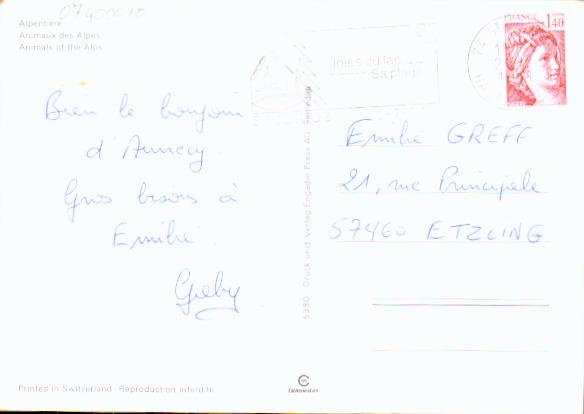 07400010
Alpentiere
Animaux des Alpes
Animals of the Alps
Joies du lac
Sa plage
FRANCE
1,40
Bien le bonjour
d'Annecy
Gros bisous à
Emilie
Gaby
5380 Druck und Verlag Engadin Press AG Samedan
Emilie GREFF
21, rue Principale
57460 ETZLING
Printed in Switzerland - Reproduction interdite